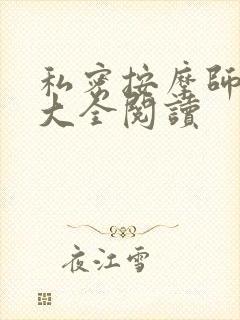 私密按摩師
大全閱讀
夜江雪